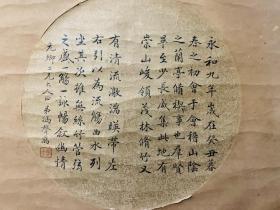 永和九年歲在癸丑暮
春之初會于會稽山陰
之蘭亭脩稧事也羣賢
畢至少長咸集此地有
崇山峻領茂林脩竹又
有清流激湍暎帶左
右引以為流觴曲水列
坐其次雖無絲竹管弦
之盛一觴一詠暢敘幽情
卿兄大人